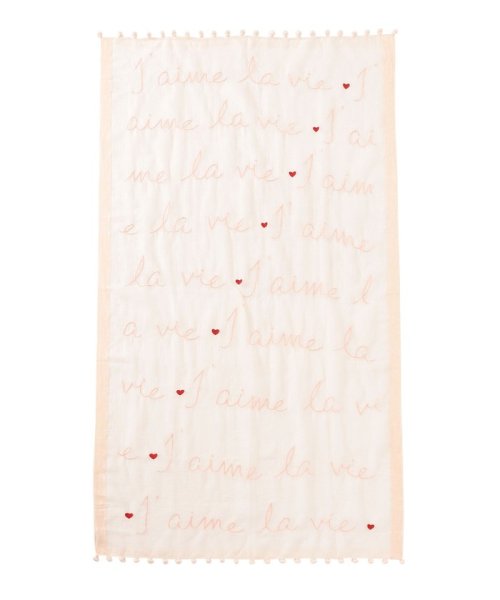 J'aime la vie ♥ J'
aime la vie ♥ J'ai
me la vie ♥ J'aim
e la vie ♥ J'aime
la vie ♥ J'aime l
a vie ♥ J'aime la
vie ♥ J'aime la vi
e ♥ J'aime la vie
♥ J'aime la vie ♥